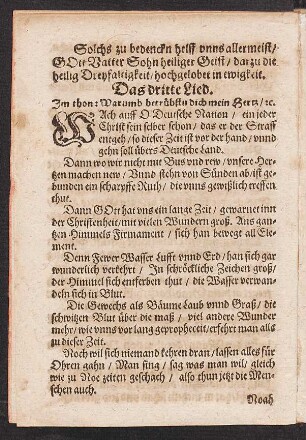 Solchs zu bedencken helff vnns allermeist/
GOtt Vatter Sohn heiliger Geist/ dar zu die
heilig Dreyfaltigkeit/ hochgelobet in ewigkeit.
Das dritte Lied.
Im thon: Warumb betrübstu dich mein Hertz/ ꝛc.
WAch auff O Deutsche Nation/ ein jeder
Christ sein selber schon/ das er der Straff
entgeh/ so dieser Zeit ist vor der hand/ vnnd
gehn soll übers Deutsche Land.
Dann wo wir nicht mit Bus vnd rew/ vnsere Her-
tzen machen new/ Vnnd stehn von Sünden ab/ ist ge-
bunden ein scharpffe Ruth/ die vnns gewißlich treffen
thut.
Dann GOtt hat vns ein lange Zeit/ gewarnet inn
der Christenheit/ mit vielen Wundern groß. Ans gan-
tzen Himmels Firmament/ sich han bewegt all Ele-
ment.
Denn Fewer Wasser Lufft vnnd Erd/ han sich gar
wunderlich verkehrt/ In schröckliche Zeichen groß/
der Himmel sich entferben thut/ die Wasser verwan-
deln sich in Blut.
Die Gewechs als Bäume Laub vnnd Graß/ die
schwitzen Blut über die maß/ viel andere Wunder
mehr/ wie vnns vor lang propheceit/ erfehrt man alls
zu dieser Zeit.
Noch wil sich niemand kehren dran/ lassen alles für
Ohren gahn/ Man sing/ sag was man wil/ gleich
wie zu Noe zeiten geschach/ also thun jetzt die Men-
schen auch.
Noah